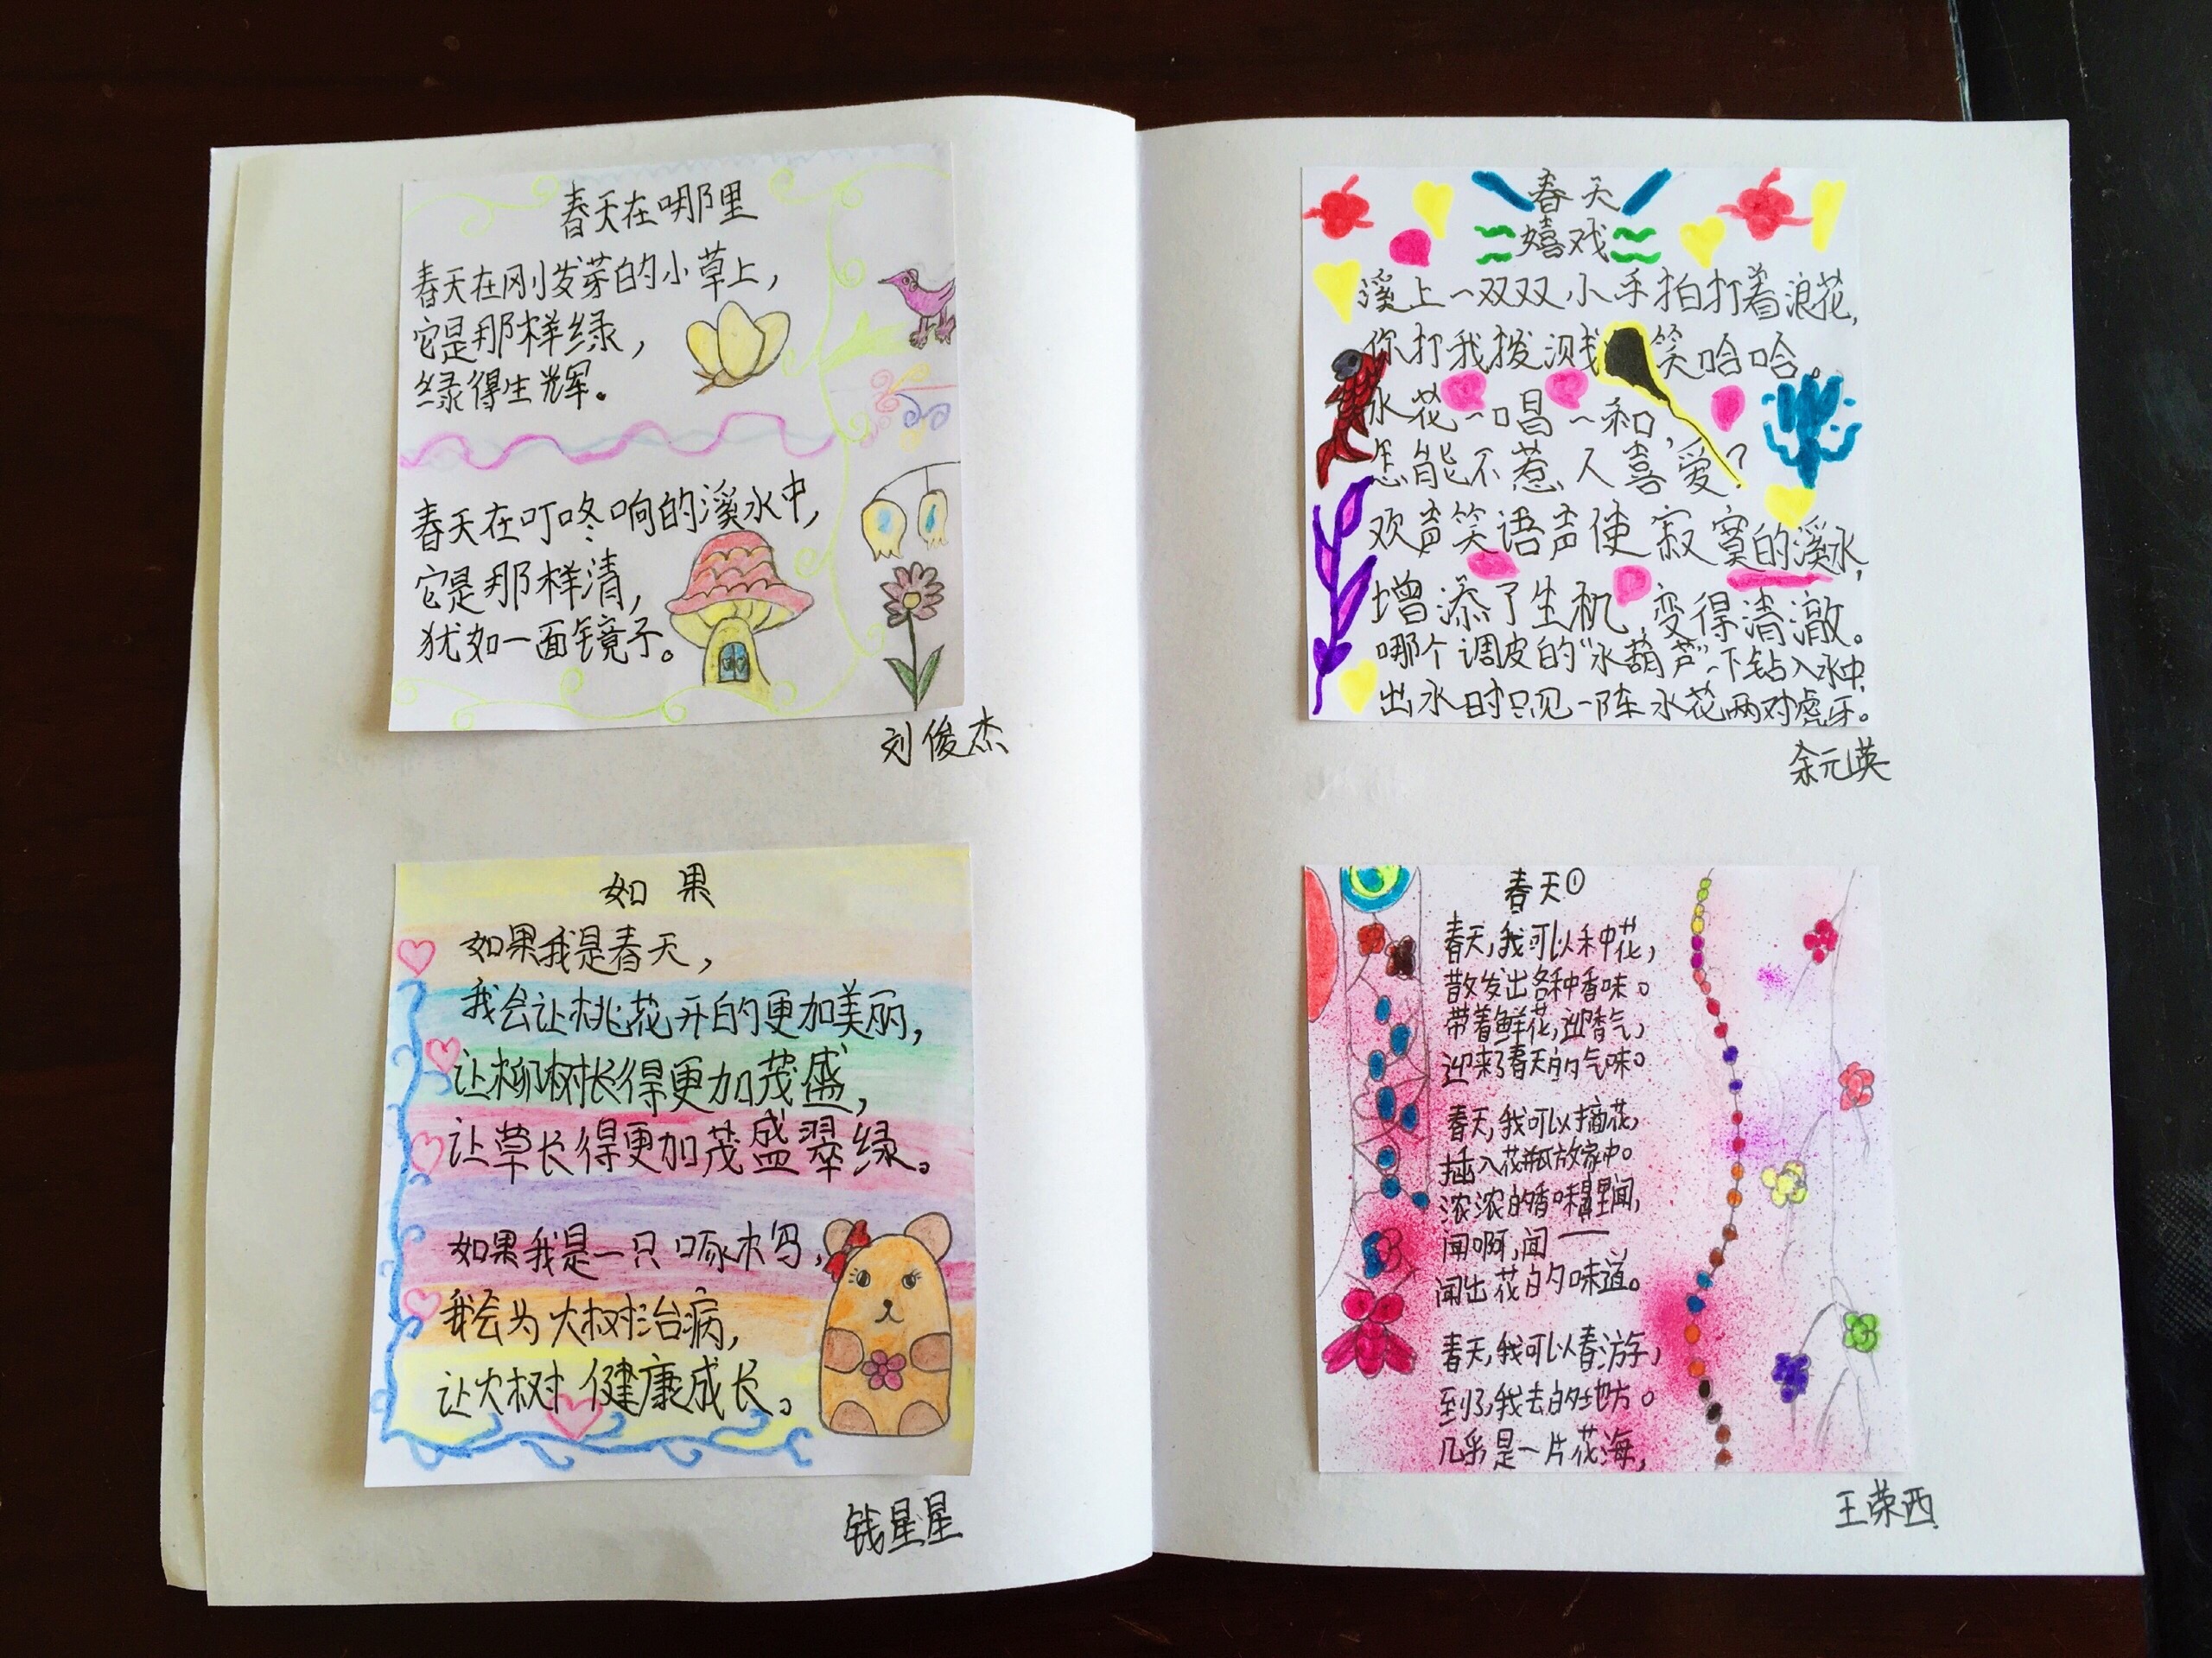 春天在哪里
春天在刚发芽的小草上，
它是那样绿，
绿得生辉。
春天在叮咚响的溪水中，
它是那样清，
犹如一面镜子。
刘俊杰
如果
如果我是春天，
我会让桃花开的更加美丽，
让柳树长得更加茂盛，
让草长得更加茂盛翠绿。
如果我是一只啄木鸟，
我会为大树治病，
让大树健康成长。
钱星星
春天
嬉戏
溪上一双双小手拍打着浪花，
你打我拨溅 笑哈哈。
水花一唱一和，
怎能不惹人喜爱？
欢声笑语声使寂寞的溪水，
增添了生机，变得清澈。
哪个调皮的“水葫芦”一下钻入水中，
出水时只见一阵水花两对虎牙。
余元英
春天①
春天，我可以种花，
散发出各种香味。
带着鲜花，迎香气，
迎来了春天的气味。
春天，我可以摘花，
插入花瓶放家中。
浓浓的香味屋里闻，
闻啊，闻——
闻出花的味道。
春天，我可以春游，
到了我去的地方。
几乎是一片花海，
王荣西